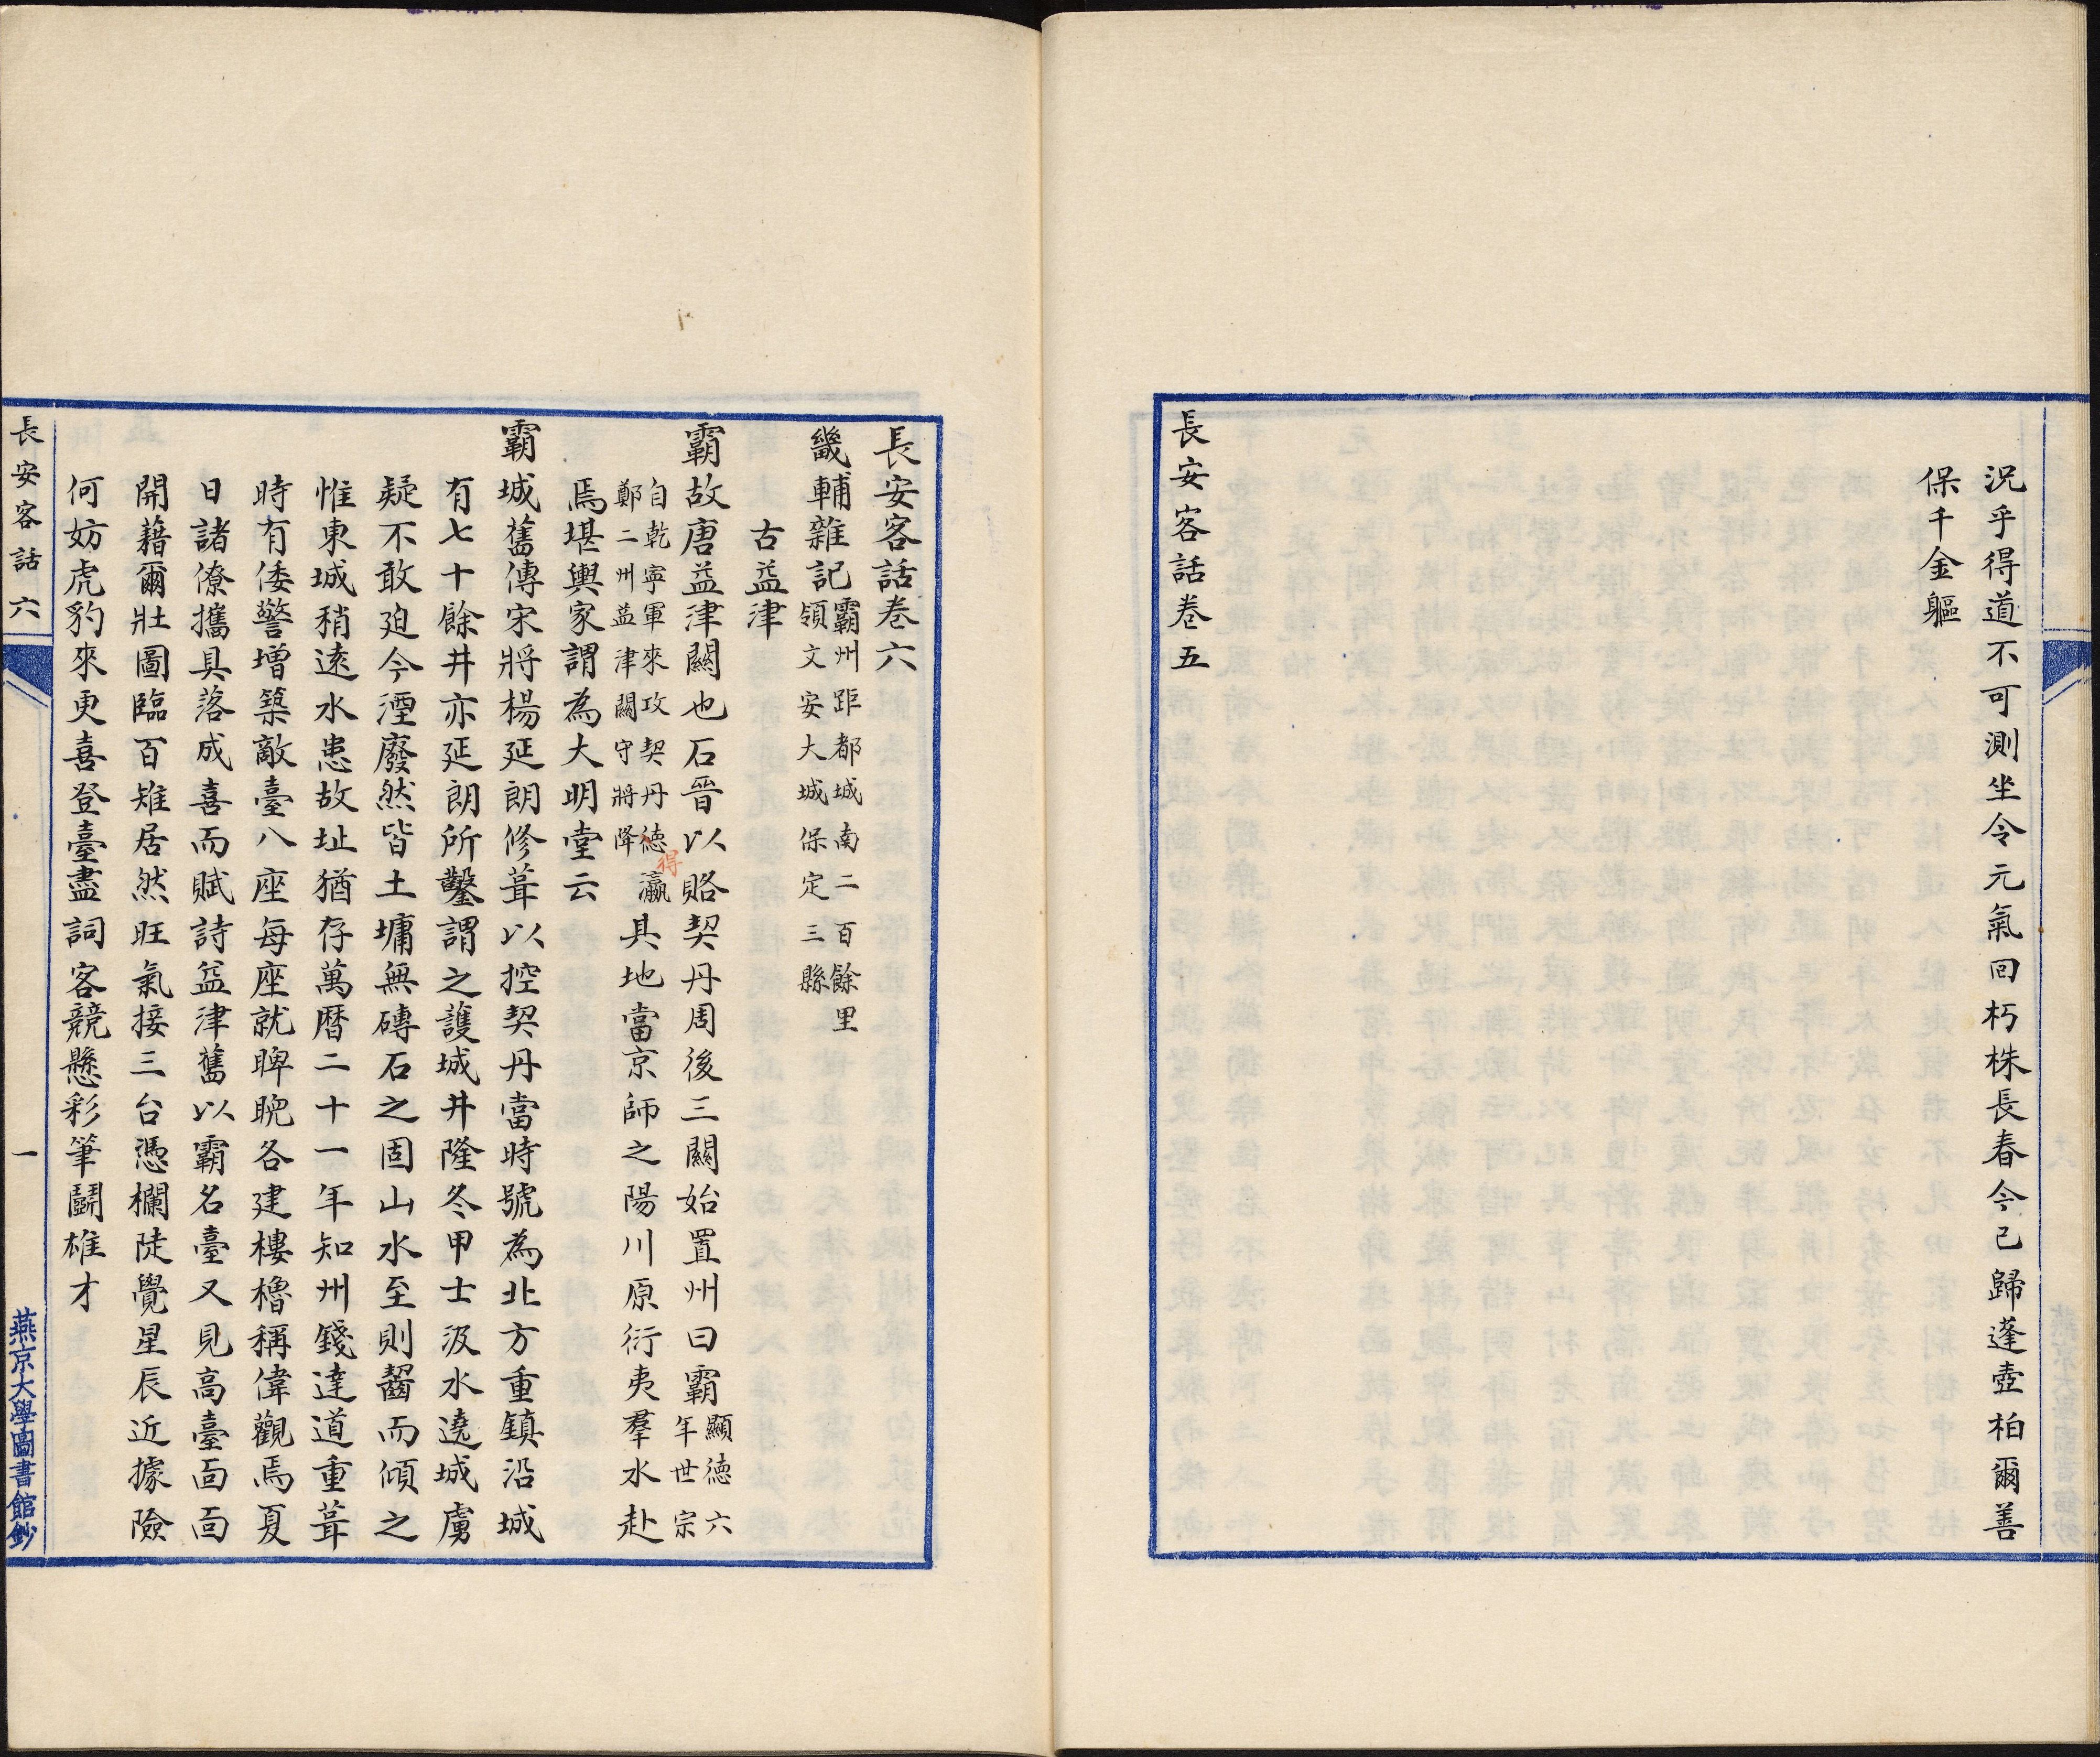 況乎得道不可測坐令元氣回朽株長春今已歸蓬壺柏爾善
保千金軀
長安客話卷五
長安客話卷六
畿輔雜記霸州距都城南二百餘里
領文安大城保定三縣
古益津
霸故唐益津關也石晉以賂契丹周後三關始置州曰霸顯德六
年世宗
自乾寧軍來攻契丹德得瀛
鄭二州益津關守將降
具地當京師之陽川原衍夷羣水赴
焉堪輿家謂為大明堂云
霸城舊傳宋將楊延朗修葺以控契丹當時號為北方重鎮沿城
有七十餘井亦延朗所鑿謂之護城井隆冬甲士汲水遶城虜
疑不敢廹今湮廢然皆土墉無磚石之固山水至則齧而傾之
惟東城稍遠水患故址猶存萬曆二十一年知州錢達道重葺
時有倭警增築敵臺八座每座就睥睨各建樓櫓稱偉觀焉夏
日諸僚攜具落成喜而賦詩益津舊以霸名臺又見高臺面面
開藉爾壯圖臨百雉居然旺氣接三台憑欄陡覺星辰近據險
何妨虎豹來更喜登臺盡詞客競懸彩筆鬬雄才
長安客話六
一
燕京大學圖書館鈔